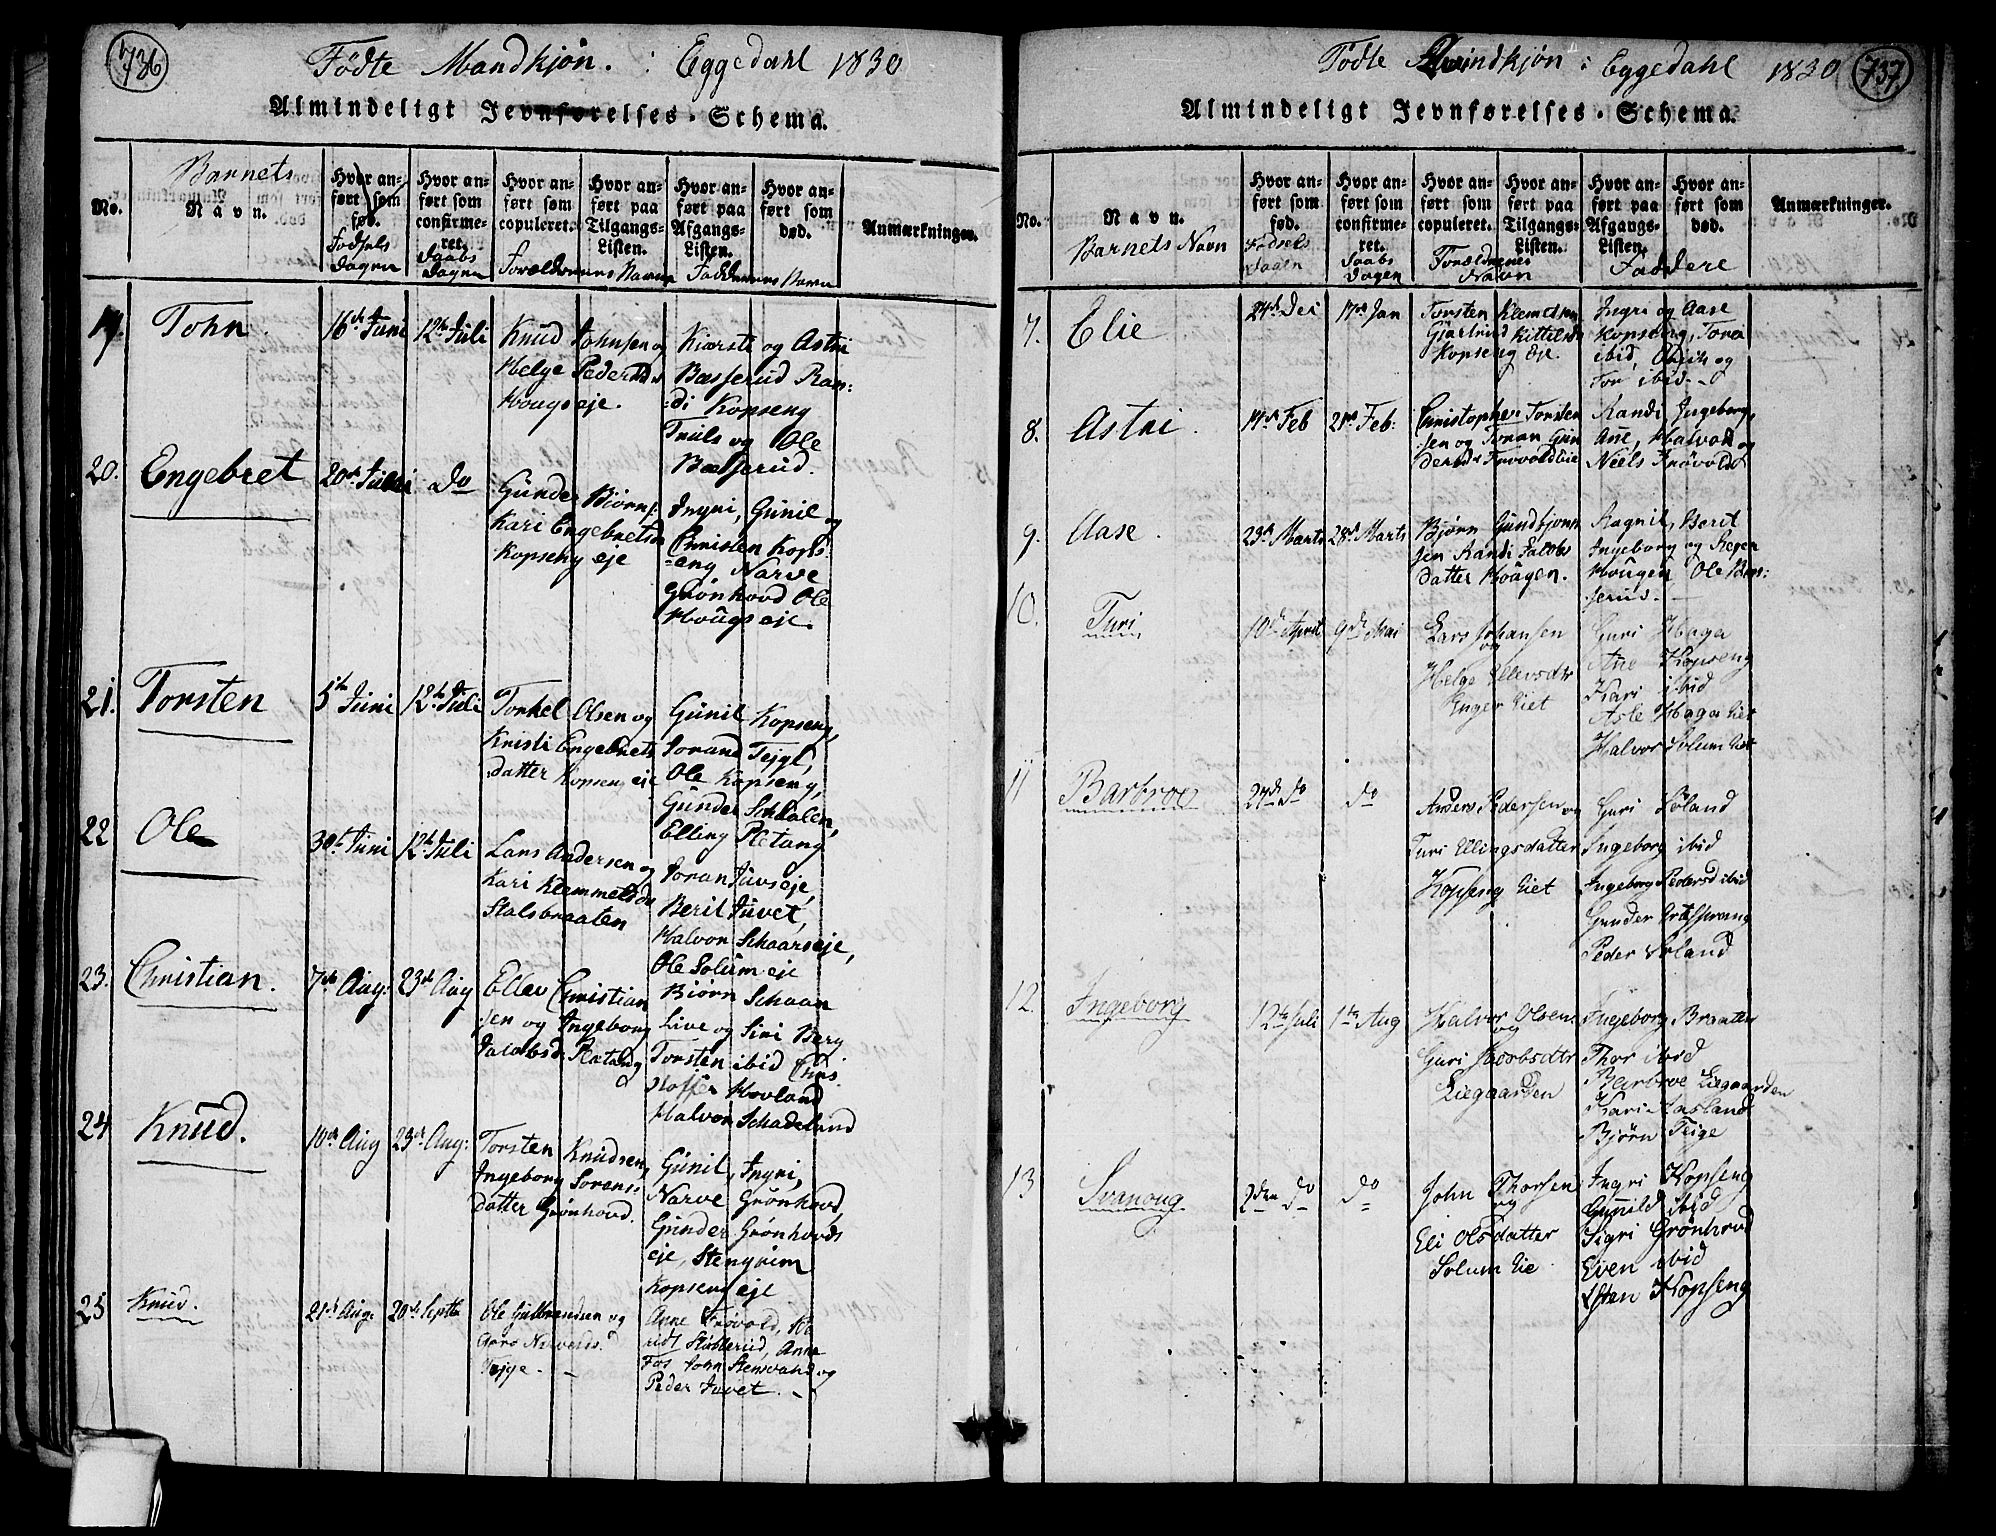 736
Födte Mandkjön. i Eggedahl 1830
Almindeligt Jevnførelses-Schema.
No.
Barnets
Navn.
Hvor an-
ført som
fød.
Födsels
Dagen
Hvor an-
ført som
confirme-
ret.
Daabs
Dagen
Hvor an-
ført som
copuleret.
Hvor an-
ført paa
Tilgangs-
Listen.
Forældrenes Navne
Hvor an-
ført paa
Afgangs-
Listen.
Hvor an-
ført som
død.
Faddernes Navne
Anmærkninger.
19.
John.
16de Juni
12te Juli
Knud Johnsen og
Helge Pedersd
Hougseje.
Kiærste og Astri
Bæsserud Ran:
:di Kopseng
Truls og Ole
Bæsserud.
20.
Engebret
20de Juni
do
Gunder Biörns
Kari Engebretsd
Kopseng eje
Ingri, Günil og
Christen Kops:
:eng Narve
Grönhovd Ole
Hougs eje.
21.
Torsten
5te Juni
12te Juli
Torkel Olsen og
Kristi Engebrets
datter Kopseng eje
Günil Kopseng,
Jorand Tejgl,
Ole Kopseng,
Günder Schalen,
Elling Pletang
22
Ole
30te Juni
12te Juli
Lars Andersen og
Kari Klemmetsdr
Stalsbraaten
Joran Juvseje,
Beril Juvet,
Halvor Schaarseje,
Ole Solum eje
Biörn Schaan
23.
Christian.
7de Aug:
23de Aug
Ellev Christian
sen og Ingeborg
Jacobsd. Pletang
Live og Siri Berg
Torsten ibid Chris
stoffer Hovland
Halvor Schadeland
24
Knud.
10de Aug
23de Aug:
Torsten Knudsen,
Ingeborg Sorens-
datter Grönhovd.
Günil, Ingri,
Narve Grönhovd,
Günder Grönhovds
eje, Stengrim
Kopseng eje
25
Knud.
21de Aug.
20de Septb
Ole Gulbrandsen og
Narvesd.
Tejge. -
Anne Frövold,
Stübberud, Anne
Fos John Stensrand og
Peder Juvet. -
Födte Qvindkjön i Eggedahl 1830
737.
Almindeligt Jevnførelses-Schema.
No.
Navn.
Barnets Navn
Hvor an-
ført som
fød.
Födsels
Dagen
Hvor an-
ført som
confirme-
ret.
Daabs
Dagen
Hvor an-
ført som
copuleret.
Hvor an-
ført paa
Tilgangs-
Listen.
Forældrenes
Navn
Hvor an-
ført paa
Afgangs-
Listen.
Hvor an-
ført som
død.
Faddere
Anmærkninger.
7.
Elie
24de Dec
17de Jan
Torsten Klemetsen
Gjartrud Kittilsd
Kopseng Eje.
Ingri og Aase
Kopseng, Tora
ibid, og
Tor ibid.
8.
Astri.
14de Feb
21de Feb:
Christopher Torsten
sen og Joran Gun
dersdr Frövold Eie
Randi Ingeborg,
Ane, Halvor og
Niels Frövold
9.
Aase.
23de Marts
28de Marts
Björn Gundbjörn
sen Randi Jacobs
datter Hougen.
Ragnil, Berit
Ingeborg og
Hougen Ole Bæs:
serud.
10.
Turi
10de April
9de Mai
Lars Johansen
og
Helge Ellevsdtr
Enger Eiet
Guri Haga
Ane Kopseng
Kari ibid
Asle Haga Eiet
Halvor Solum Eiet
11
Barbroe
27de do
do
Anders Pedersen og
Turi Ellingsdatter
Kopseng Eiet
Guri Söland
Ingeborg ibid
Ingeborg Pedersd ibid
Gunder Græsprang
Peder Soland
12.
Ingeborg
12te Juli
1te Aug
Halvor Olsen
og
Guri Jacobsdtr
Eiegaarden
Ingeborg Braaten
Thor ibid
Barbroe Eiegaarden
Kari Aasland
Björn Teige
13
Svanoug
2den do
do
John Thorsen
og
Eli Olsdatter
Solum Eie
Ingri Kopseng
Gunild ibid
Sigri Grönhovd
Even ibid
Kopseng